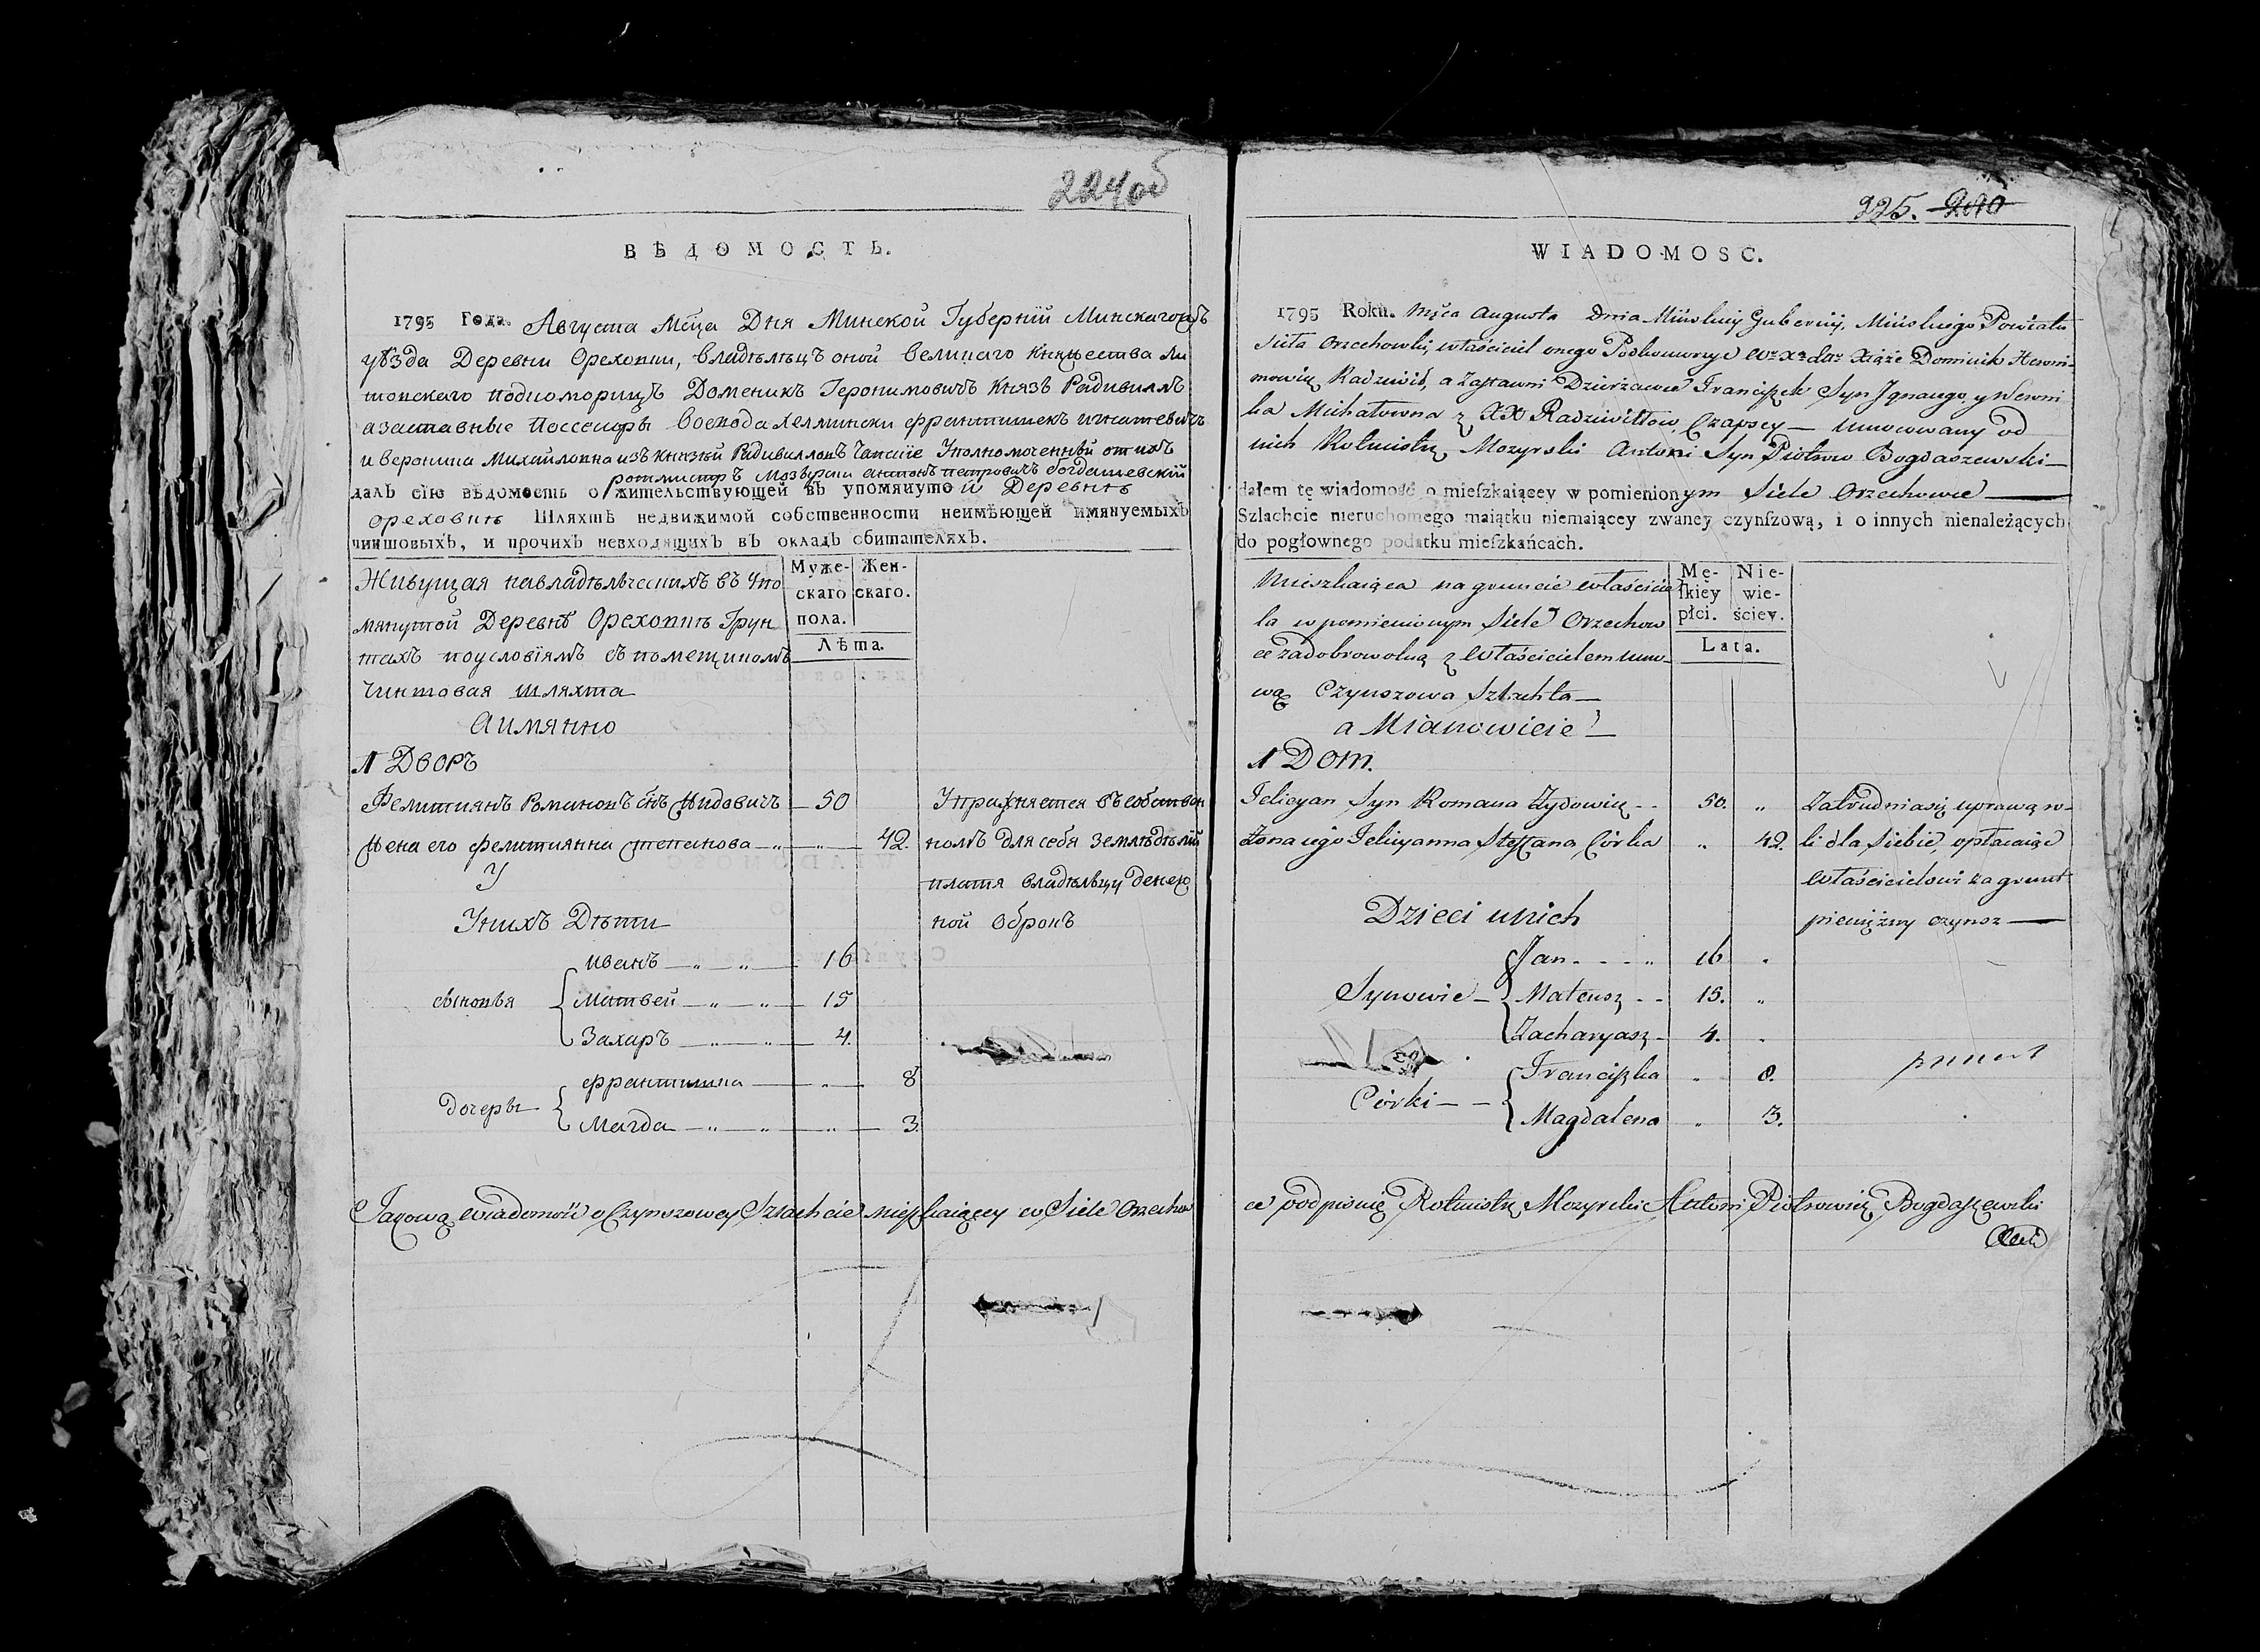 224 об
ВѢДОМОСТЬ.
1795 Года. Августа Мсца Дня Минской Губернiй Минскаго
уѣзда Деревни Ореховки, владѣлѣцъ оной великаго княжества Ли
товскаго подкоморицъ Доменикъ Геронимовичъ Князь Радивиллъ
а заставные поссесоры воевода хелмински францишекъ игнатевичъ
и вероника Михайловна изъ князей Радивилловъ Чапскiе Уполномоченный от ихъ
ротмистръ Мозырски антонъ петровичъ богдашевскiй
далъ сiю вѣдомость о жительствующей въ упомянутой Деревнѣ
ореховкѣ Шляхтѣ недвижимой собственности неимѣющей имянуемыхъ
чиншовыхъ, и прочихъ невходящихъ въ окладъ обитателяхъ.
Живущая на владѣльческихъ въ упо
мянутой Деревнѣ Ореховкѣ Грун
тахъ по условiямъ съ помещикомъ
Чиншовая шляхта
а имянно
Муже-
скаго
пола.
Жен-
скаго.
Лѣта.
1 Дворъ
Фелициянъ Романовъ снъ Жидовичъ — 50
Жена его Фелициянна степанова — „ — „ — 42.
У
Упражняется въ собствен
номъ для себя земледѣлiй
платя владѣльцу денеж
ной оброкъ
У нихъ Дѣти
сыновья
иванъ — „ — „ — 16
Матвей — „ — „ — 15
Захаръ — „ — „ — 4.
дочеры
францишка — „ — 8
Магда — „ — „ — „ — 3.
Takową wiadomość o Czynszowey Szlachcie mieszkaiącey w Siele Orzechow
225. 200
WIADOMOSC.
1795 Roku. Mśca Augusta Dnia Mińskiey Gubernij, Mińskiego Powiatu
Sieła Orzechowki, właściciel onego Podkomorzyc Xże Dominik Hieroni-
mowicz Radziwił, a Zastawni Dzierżawcy Franciszek Syn Ignacego y Weroni
ka Michałowna z XX Radziwiłłow Czapscy — umocowany od
nich Rotmistrz Mozyrski Antoni Syn Piotra Bogdaszewski —
dałem tę wiadomość o mieſzkaiącey w pomienionym Siele Orzechowce
Szlachcie nieruchomego maiątku niemaiącey zwaney czynſzową, i o innych nienależących
do pogłownego podatku mieſzkańcach.
Mieszkaiąca na gruncie właścicie
la w pomienionym Siele Orzechow
ce za dobrowolną z właścicielem umo-
wą Czynszowa Szlachta —
a Mianowicie —
Mę-
ſkiey
płci.
Nie-
wie-
ściey.
Lata.
1 Dom.
Felicyan Syn Romana Żydowicz - - 50. „
Żona iego Felicyanna Stefana Córka „ 42.
Zatrudnia się uprawą ro-
li dla siebie, opłacaiąc
właścicielowi za grunt
pieniężny czynsz —
Dzieci u nich
Synowie —
Jan - - - „ 16 „
Mateusz - - 15. „
Zacharyasz - 4. „
Córki - -
Franciszka „ 8.
Magdalena „ 3.
ce podpisuię Rotmistrz Mozyrski Antoni Piotrowicz Bogdaszewski